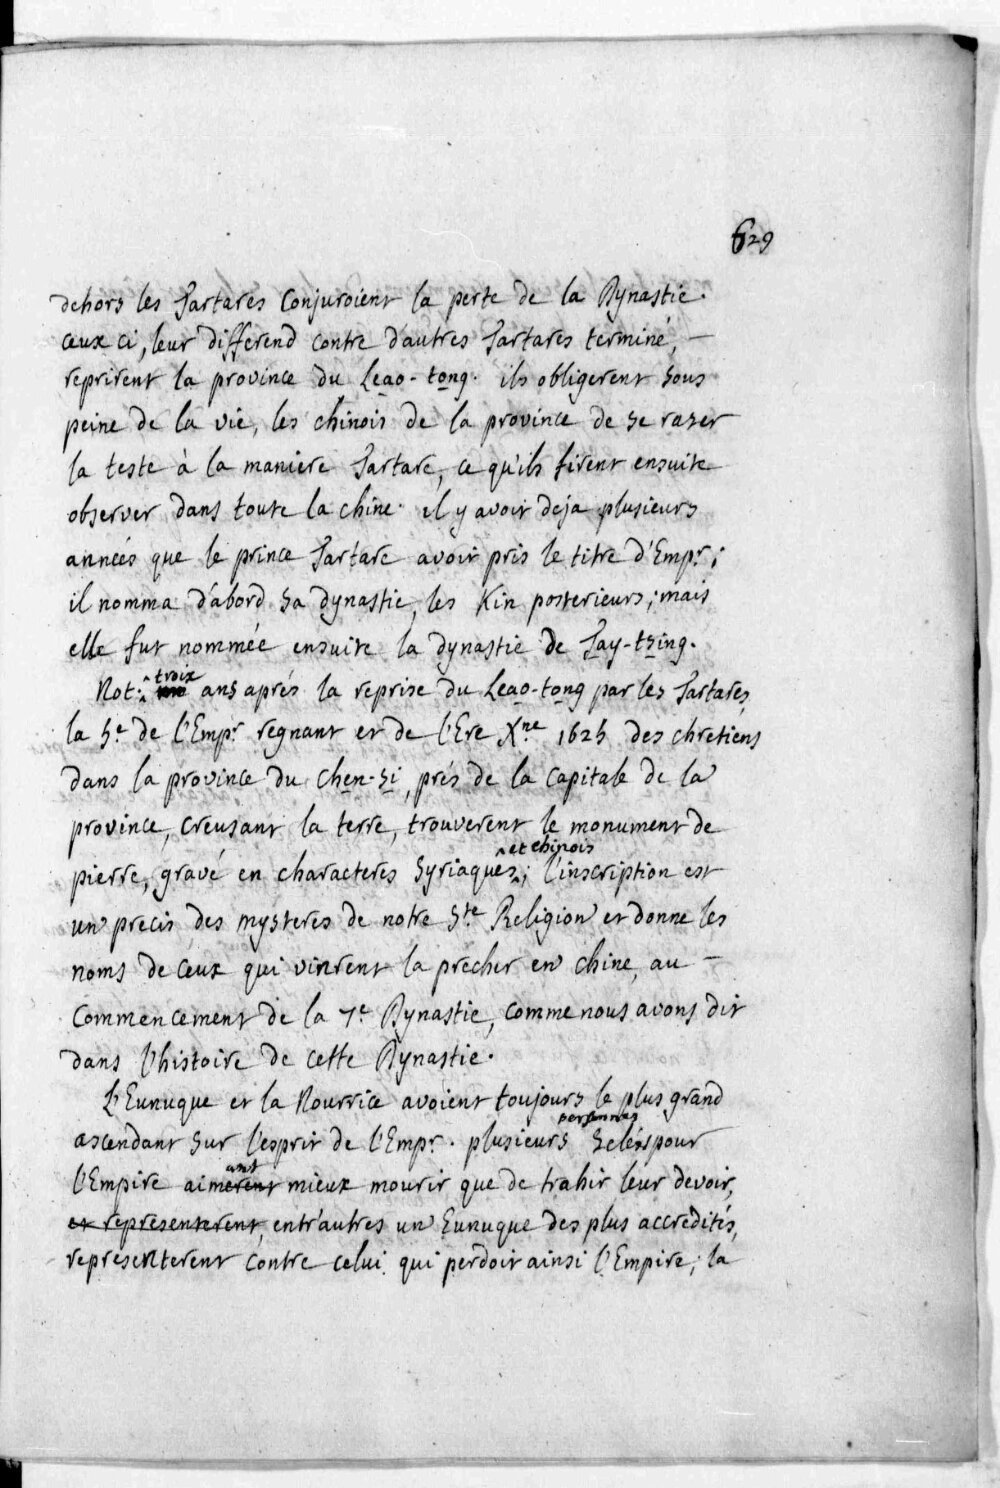 629
dehors les Tartares conjuroient la perte de la Dynastie.
ceux ci, leur differend contre d'autres Tartares terminé, —
reprirent la province du Leao-tong. ils obligerent sous
peine de la vie, les chinois de la province de se raser
la teste à la maniere Tartare, ce qu'ils firent ensuite
observer dans toute la chine. il y avoit deja plusieurs
années que le prince Tartare avoit pris le titre d'Empr;
il nomma d'abord sa dynastie, les Kin posterieurs; mais
elle fut nommée ensuite la dynastie de Tay-tsing.
Not: troix ans aprés la reprise du Leao-tong par les Tartares,
la 5e de l'Empr regnant et de l'Ere Xne 1625 des chretiens
dans la province du Chen-si, prés de la capitale de la
province, creusant la terre, trouverent le monument de
pierre, gravé en characteres Syriaques et chinois; l'inscription est
un precis des mysteres de notre Ste Religion et donne les
noms de ceux qui vinrent la precher en chine, au —
commencement de la 7e Dynastie, comme nous avons dit
dans l'histoire de cette Dynastie.
L'Eunuque et la Nourrice avoient toujours le plus grand
ascendant sur l'esprit de l'Empr. plusieurs personnes selés pour
l'Empire aimant mieux mourir que de trahir leur devoir,
et representerent, entr'autres un Eunuque des plus accredités,
representerent contre celui qui perdoit ainsi l'Empire; la